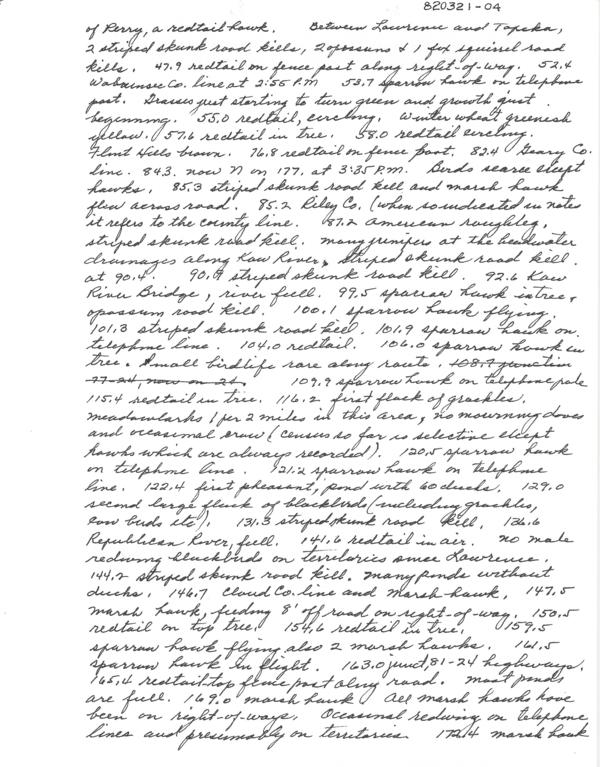 820321-04
of Perry, a redtail hawk. Between Lawrence and Topeka,
2 striped skunk road kills, 2 opossums & 1 fox squirrel road
kills. 47.9 redtail on fence post along right-of-way. 52.4
Wabaunsee Co. line at 2:55 P.M 53.7 sparrow hawk on telephone
post. Grasses just starting to turn green and growth just
beginning. 55.0 redtail, circling. Winter wheat greenish
yellow. 57.6 redtail in tree. 58.0 redtail circling.
Flint Hills brown. 76.8 redtail on fence post. 82.4 Geary Co.
line. 84.3. now N on 177, at 3:35 P.M. Birds scarce except
hawks. 85.3 striped skunk road kill and marsh hawk
flew across road. 85.2 Riley Co. (when so indicated in notes
it refers to the county line. 87.2 American roughleg,
striped skunk road kill. many junipers at the headwater
drainages along Kaw River, striped skunk road kill
at 90.4. 90.9 striped skunk road kill. 92.6 Kaw
River Bridge, river full. 99.5 sparrow hawk in tree,
opossum road kill. 100.1 sparrow hawk flying.
101.3 striped skunk road kill. 101.9 sparrow hawk on
telephone line. 104.0 redtail. 106.0 sparrow hawk in
tree. Small birdlife rare along route. 108.7 junction
77-24, now on 24. 109.9 sparrow hawk on telephone pole
115.4 redtail in tree. 116.2 first flock of grackles,
meadowlarks 1 per 2 miles in this area, no mourning doves
and occasional crow (census so far is selective except
hawks which are always recorded). 120.5 sparrow hawk
on telephone line. 121.2 sparrow hawk on telephone
line. 122.4 first pheasant, pond with 60 ducks. 129.0
second large flock of blackbirds (including grackles,
cow birds etc). 131.3 striped skunk road kill. 136.6
Republican River, full. 141.6 redtail in air. no male
redwing blackbirds on territories since Lawrence.
144.2 striped skunk road kill. many ponds without
ducks. 146.7 Cloud Co. line and marsh hawk. 147.5
marsh hawk, feeding 8' off road on right-of-way. 150.5
redtail on top tree. 154.6 redtail in tree. 159.5
sparrow hawk flying also 2 marsh hawks. 161.5
sparrow hawk in flight. 163.0 junct, 81-24 highways.
165.4 redtail top fence post along road. most ponds
are full. 169.0 marsh hawk All marsh hawks have
been on right-of-ways. Occasional redwing on telephone
lines and presumably on territories. 172.4 marsh hawk